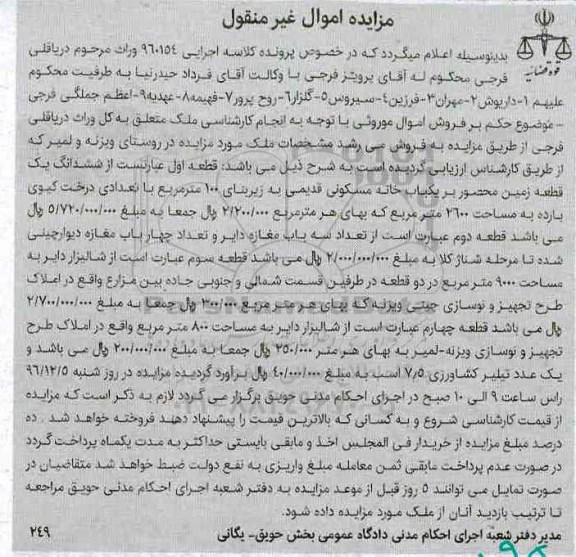 مزایده اموال غیر منقول
قوه قضائیه
بدینوسیله اعلام میگردد که در خصوص پرونده کلاسه اجرایی ۹۶۰۱۵۴ وراث مرحوم دریاقلی
فرجی محکوم له آقای پرویز فرجی با وکالت آقای فرداد حیدرنیا به طرفیت محکوم
علیهم ۱-داریوش۲-مهران۳-فرزین۴-سیروس۵-گلزار۶-روح پرور۷-فهیمه۸-عهدیه۹-اعظم جملگی فرجی
-موضوع حکم بر فروش اموال موروثی با توجه به انجام کارشناسی ملک متعلق به کل وراث دریاقلی
فرجی از طریق مزایده به فروش می رشد مشخصات ملک مورد مزایده در روستای ویزنه و لمیر که
از طریق کارشناس ارزیابی گردیده است به شرح ذیل می باشد: قطعه اول عبارتست از ششدانگ یک
قطعه زمین محصور بر یکباب خانه مسکونی قدیمی به زیربنای ۱۰۰ مترمربع با تعدادی درخت کیوی
بازده به مساحت ۲۶۰۰ متر مربع که بهای هر مترمربع ۲/۲۰۰/۰۰۰ ریال جمعا به مبلغ ۵/۷۲۰/۰۰۰/۰۰۰ ریال
می باشد قطعه دوم عبارت است از تعداد سه باب مغازه دایر و تعداد چهار باب مغازه دیوارچینی
شده تا مرحله شناژ کلا به مبلغ ۲/۰۰۰/۰۰۰/۰۰۰ ریال می باشد قطعه سوم عبارت است از شالیزار دایر به
مساحت ۹۰۰۰ متر مربع در دو قطعه در طرفین قسمت شمالی و جنوبی جاده بین مزارع واقع در املاک
طرح تجهیز و نوسازی جیتی ویزنه که بهای هر متر مربع ۳۰۰/۰۰۰ ریال جمعا به مبلغ ۲/۷۰۰/۰۰۰/۰۰۰
ریال می باشد قطعه چهارم عبارت است از شالیزار دایر به مساحت ۸۰۰ متر مربع واقع در املاک طرح
تجهیز و نوسازی ویزنه-لمیر به بهای هر متر ۲۵۰/۰۰۰ ریال جمعا به مبلغ ۲۰۰/۰۰۰/۰۰۰ ریال می باشد و
یک عدد تیلیر کشاورزی ۷/۵ اسب به مبلغ ۴۰/۰۰۰/۰۰۰ ریال برآورد گردیده مزایده در روز شنبه ۹۶/۱۲/۵
راس ساعت ۹ الی ۱۰ صبح در اجرای احکام مدنی حویق برگزار می گردد لازم به ذکر است که مزایده
از قیمت کارشناسی شروع و به کسانی که بالاترین قیمت را پیشنهاد دهند فروخته خواهد شد . ده
درصد مبلغ مزایده از خریدار فی المجلس اخذ و مابقی بایستی حداکثر به مدت یکماه پرداخت گردد
در صورت عدم پرداخت مابقی ثمن معامله مبلغ واریزی به نفع دولت ضبط خواهد شد متقاضیان در
صورت تمایل می توانند ۵ روز قبل از موعد مزایده به دفتر شعبه اجرای احکام مدنی حویق مراجعه
تا ترتیب بازدید آنان از ملک مورد مزایده داده شود.
مدیر دفتر شعبه اجرای احکام مدنی دادگاه عمومی بخش حویق- یگانی
۲۴۹